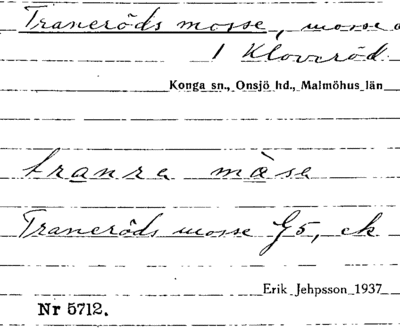 Traneröds mosse, mosse
1 Kloveröd.
Konga sn., Onsjö hd., Malmöhus län
tranre måse
Traneröds mosse G5, ek
Erik Jehpsson 1937
Nr 5712.